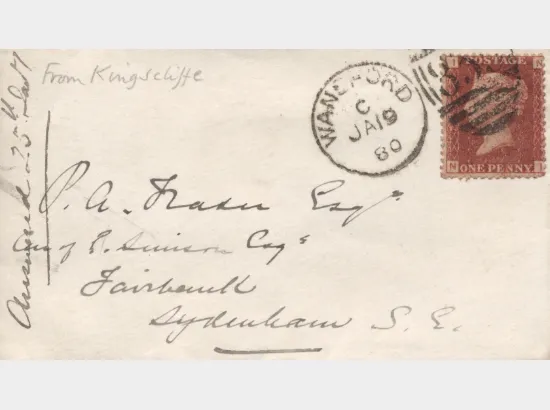 From Kingscliffe
WANSFORD
C
JA 19
80
POSTAGE
ONE PENNY
P. A. Fraser Esqre
Care of P. Simson Esqre
Fairbank
Sydenham S. E.
Answered 25th